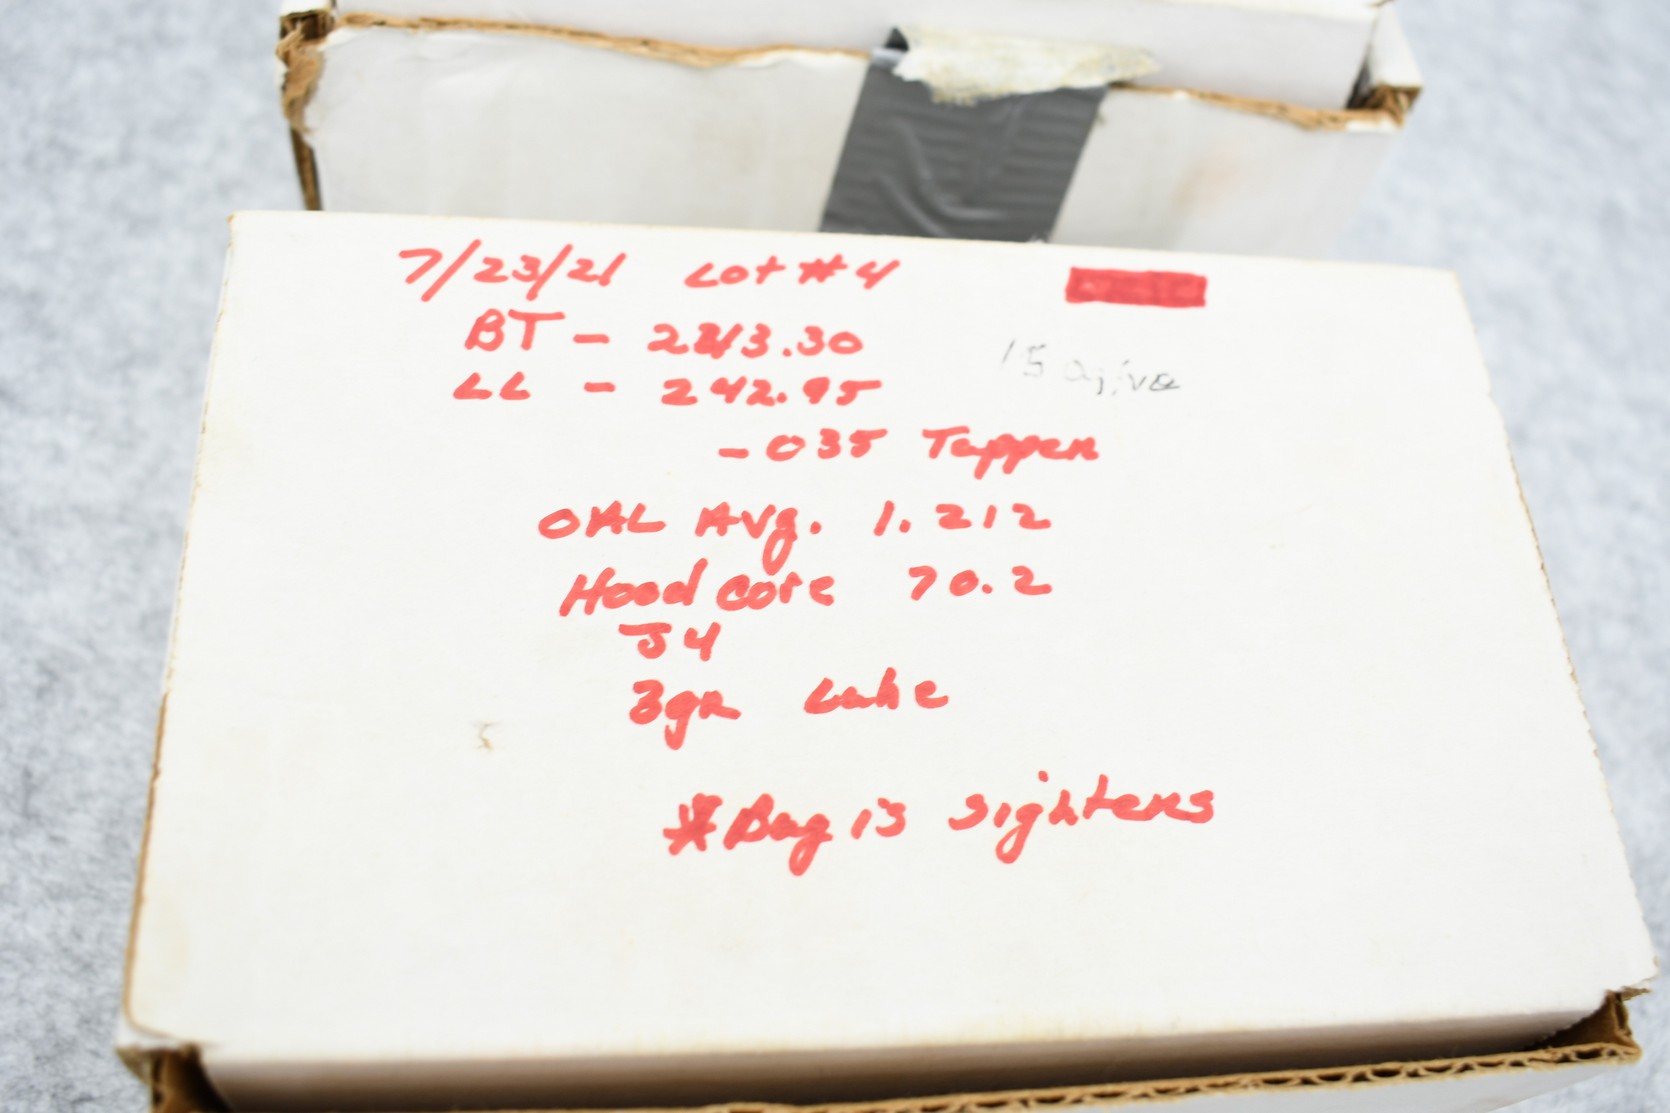 7/23/21 Lot #4
BT - 2213.30
15 Ogive
LL - 242.95
-035 Tapper
OAL Avg. 1.212
Hood core 70.2
J4
3gr Lube
*Bag is sighters